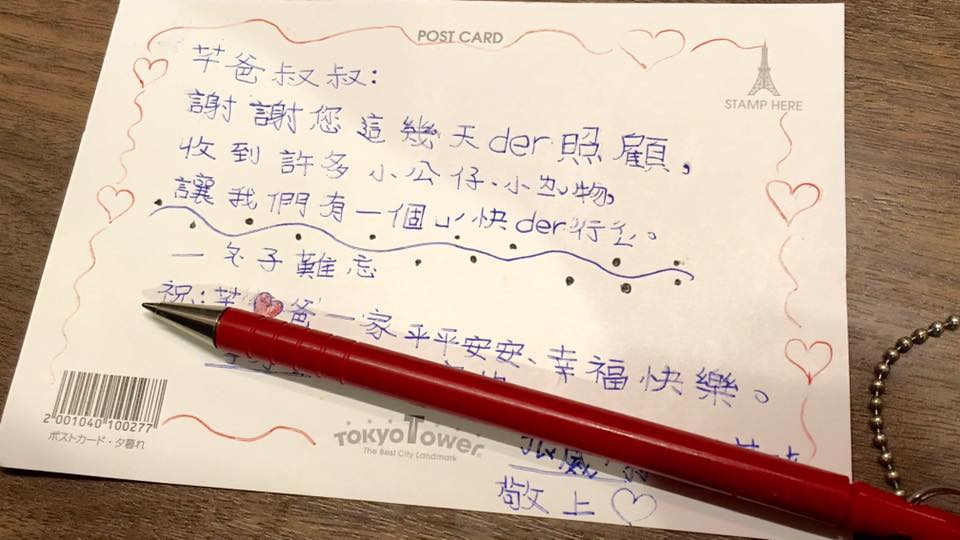 POST CARD
STAMP HERE
芊爸叔叔:
謝謝您這幾天der照顧,
收到許多小公仔、小物,
讓我們有一個快der行。
一子難忘
祝:芊爸一家平平安安、幸福快樂。
敬上
2 001040 100277
ポストカード・夕暮れ
TOKYO TOWER
The Best City Landmark